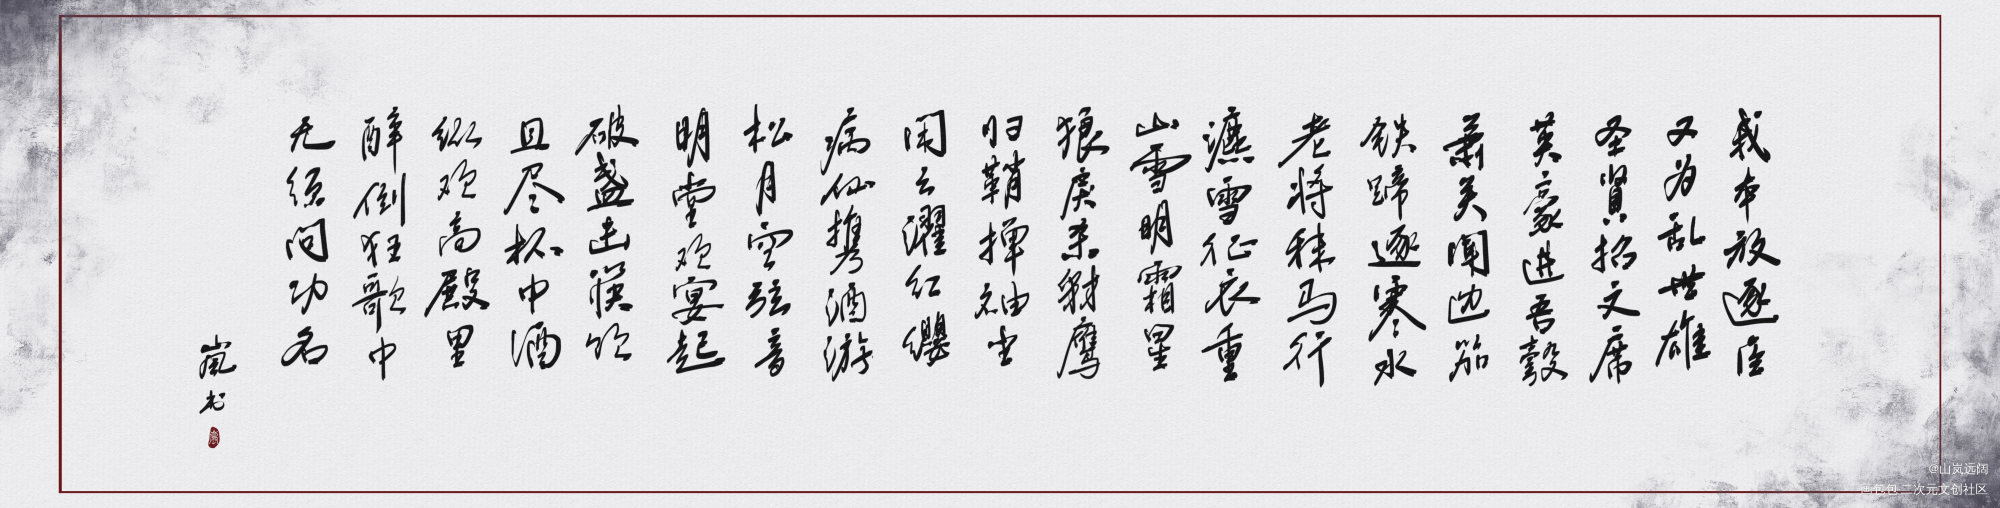 我本放逐臣
又为乱世雄
圣贤招文席
英豪进吾彀
萧关闻边笳
铁蹄逐寒水
老将秣马行
漉雪征衣重
山雪明霜星
狼戾杀豺鹰
归鞘掸袖坐
闲云濯红缨
病仙携酒游
松月空弦音
明堂欢宴起
破盏击筷饮
且尽杯中酒
纵观高殿里
醉倒狂歌中
无须问功名
岚书
@山岚远阔
画包包-二次元文创社区